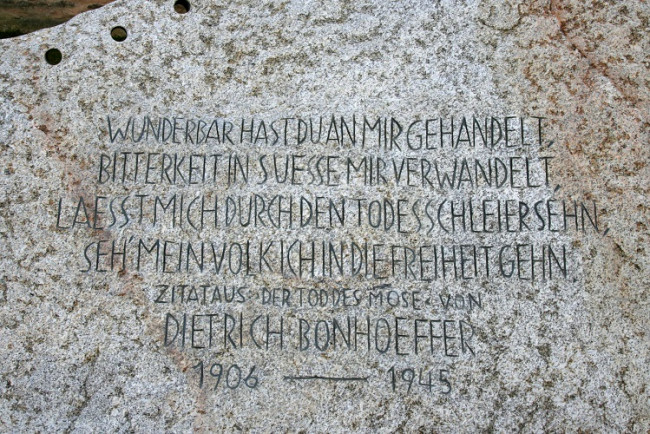 WUNDERBAR HAST DU AN MIR GEHANDELT,
BITTERKEIT IN SUESSE MIR VERWANDELT,
LAESST MICH DURCH DEN TODESSCHLEIER SEHN,
SEH' MEIN VOLK ICH IN DIE FREIHEIT GEHN
ZITAT AUS · DER TOD DES MOSE · VON
DIETRICH · BONHOEFFER
1906 — 1945